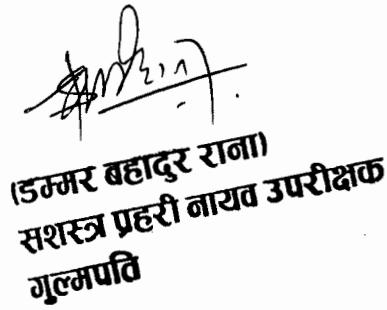 (डम्मर बहादुर राना)
सशस्त्र प्रहरी नायव उपरीक्षक
गुल्मपति